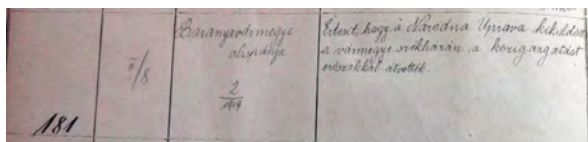 181
II/8
Baranyavármegye
alispánja
2
1919
Értesít, hogy a Narodna Uprava kiküldöttei
a vármegye székházán a közigazgatást
erőszakkal átvették.